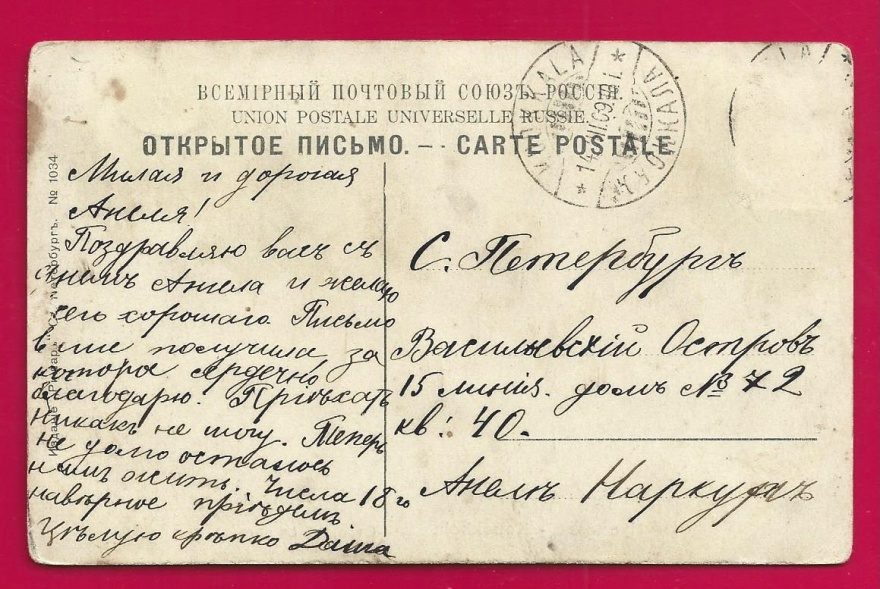 ВСЕМІРНЫЙ ПОЧТОВЫЙ СОЮЗЪ. РОССІЯ.
UNION POSTALE UNIVERSELLE RUSSIE.
ОТКРЫТОЕ ПИСЬМО. — CARTE POSTALE
№ 1034
Петербургъ.
Милая и дорогая
Анеля!
Поздравляю васъ съ
Днемъ Ангела и желаю
всего хорошаго. Письмо
ваше получила за
которое сердечно
благодарю. Пріѣхать
никакъ не могу. Теперь
не долго осталось
намъ жить. Числа 18го
навѣрное пріѣдемъ
Цѣлую крѣпко Даша
С. Петербургъ
Васильевскій Островъ
15 линія. домъ № 72
кв: 40.
Анелѣ